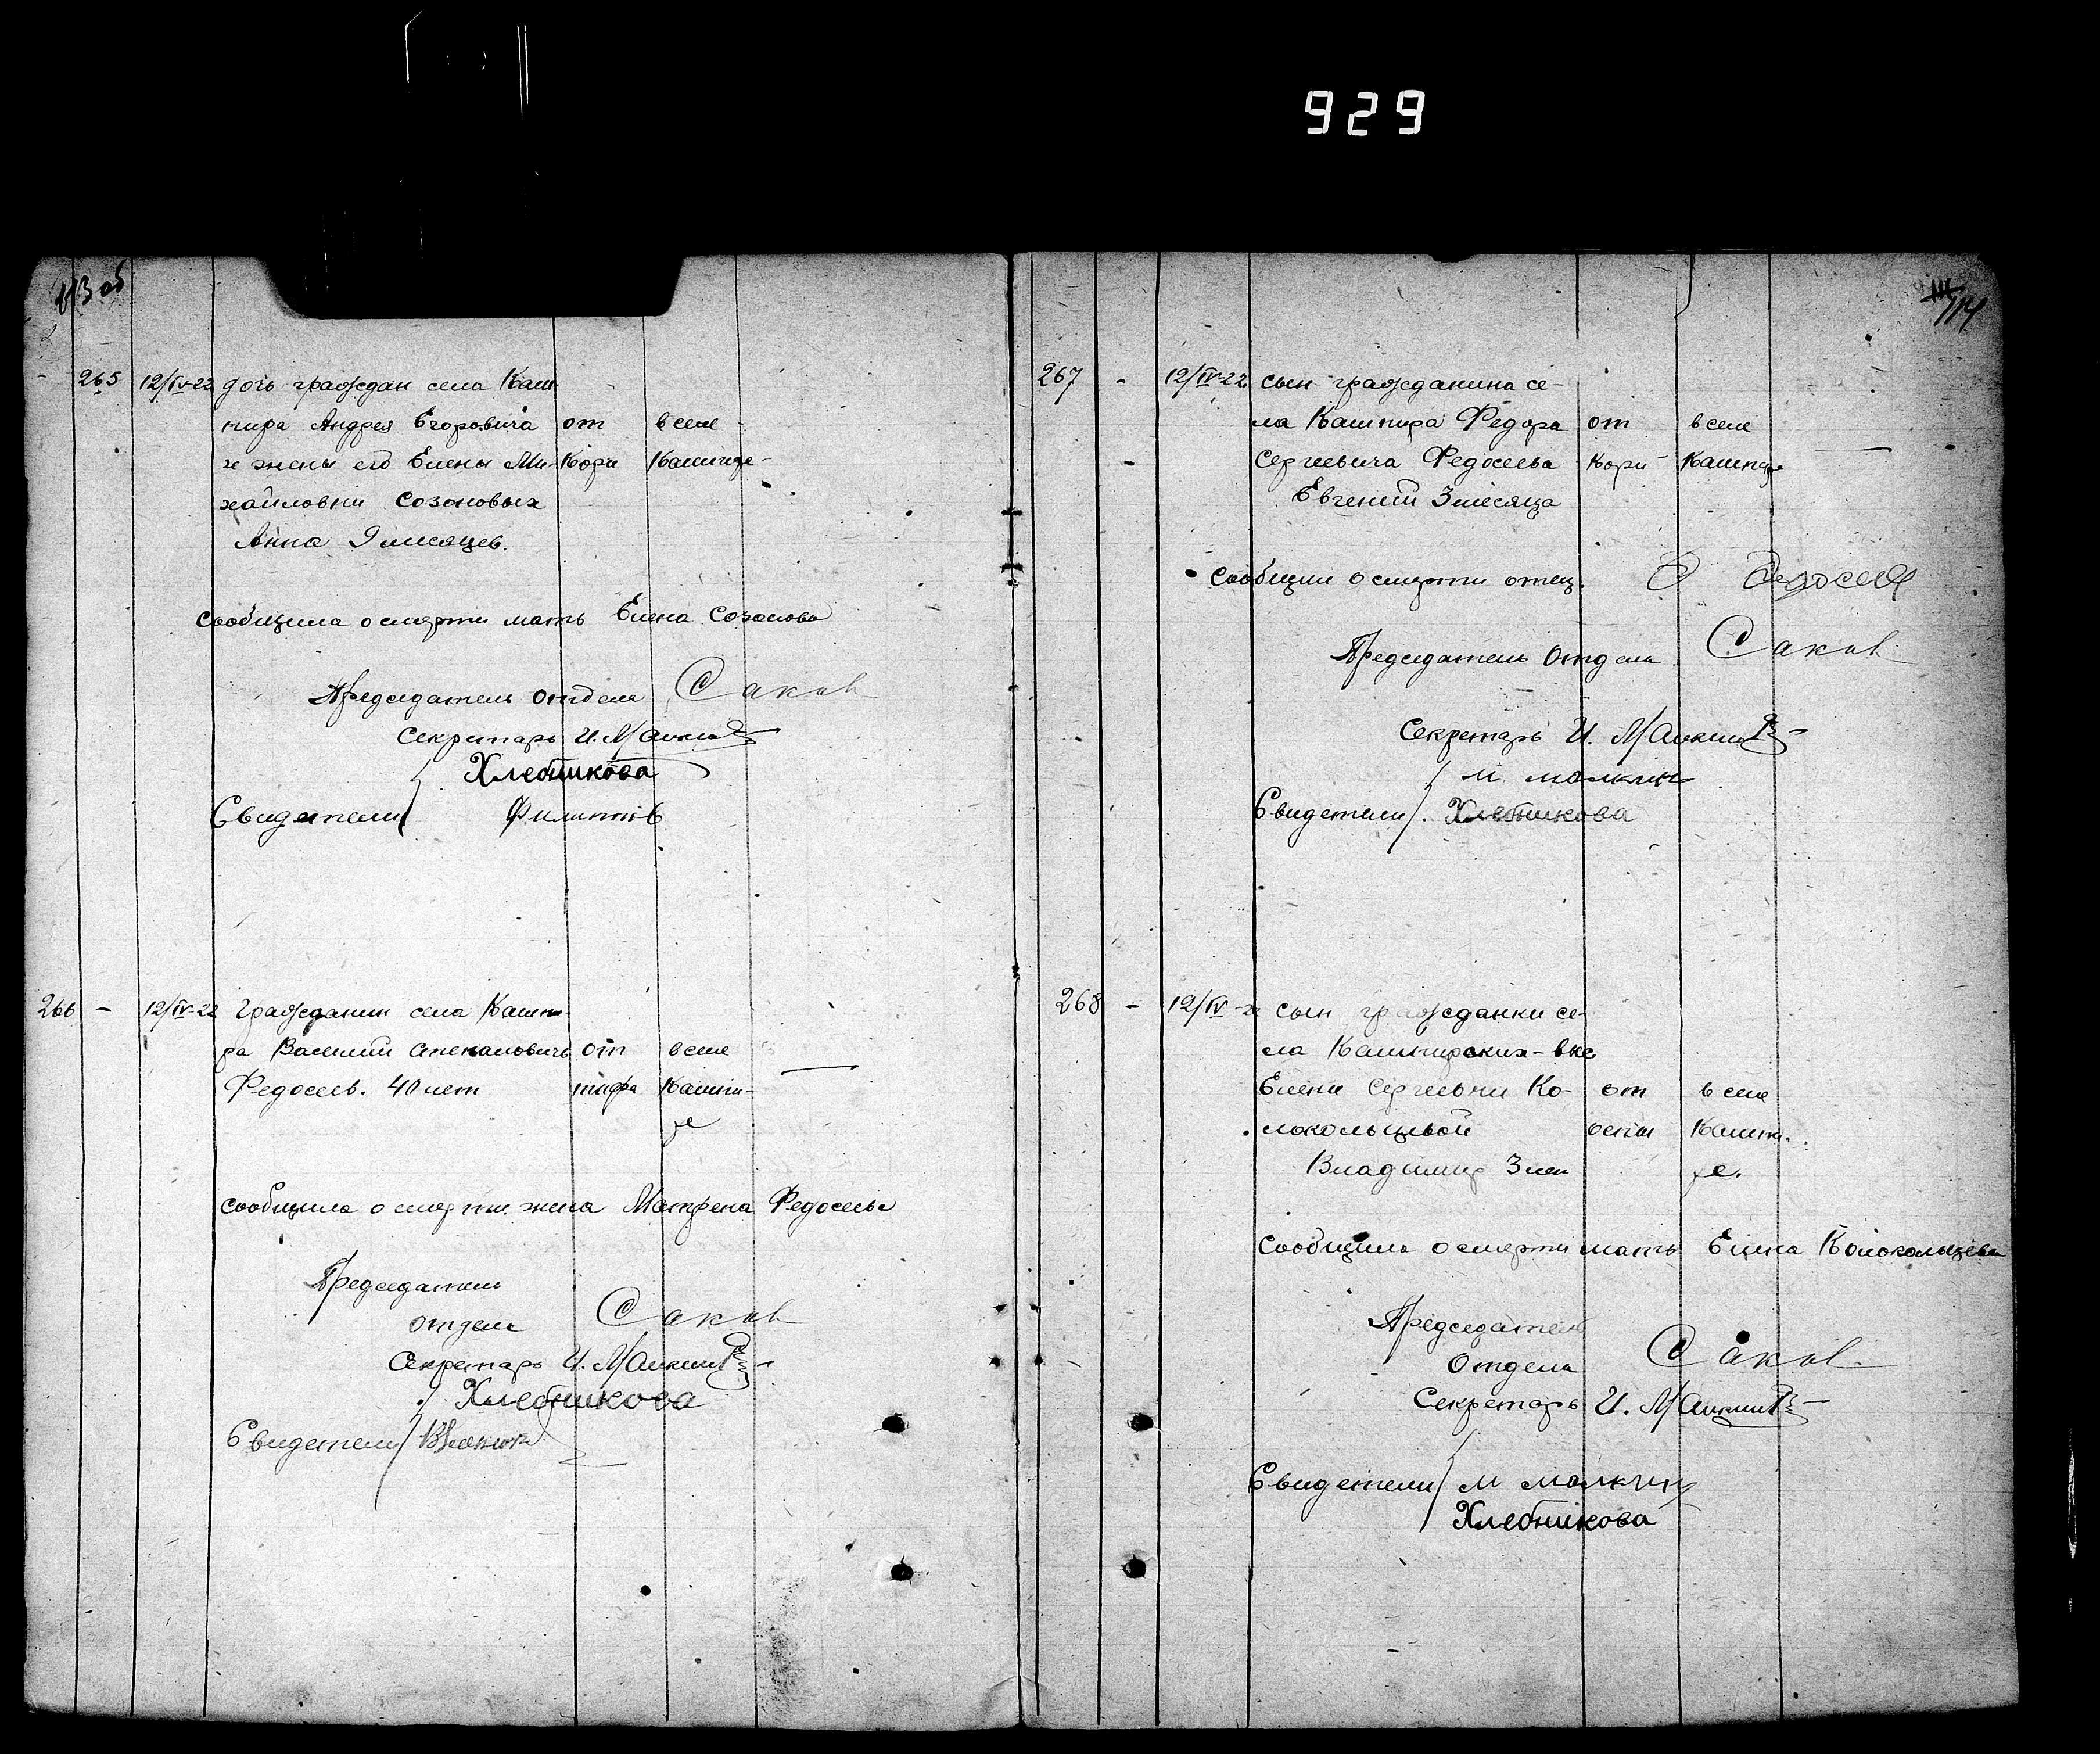 929
113 об
265 12/IV-22 дочь граждан села Каш-
пира Андрея Егоровича от в селе
и жены его Елены Ми- Кори Кашпире
хайловны Созоновых
Анна 9 месяцев.
Сообщила о смерти мать Елена Созонова
Председатель отдела Саков
Секретарь И. Малкин
Хлебникова
Свидетели Филиппов
266 - 12/IV-22 Гражданин села Кашпи-
ра Василий Степанович от в селе
Федосеев. 40 лет тифа Кашпи-
ре
Сообщила о смерти жена Матрена Федосеева
Председатель
отдела Саков
Секретарь И. Малкин
Хлебникова
Свидетели
114
267 - 12/IV-22 сын гражданина се-
ла Кашпира Федора от в селе
Сергеевича Федосеева Кори Кашпире
Евгений 3 месяца
Сообщил о смерти отец. Федосеев
Председатель Отдела Саков
Секретарь И. Малкин
М. Малкин
Свидетели Хлебникова
268 - 12/IV-22 сын гражданки се-
ла Кашпирских-
Елены Сергеевны Ко- от в селе
локольцевой оспы Кашпи-
Владимир 3 мес ре.
Сообщила о смерти мать Елена Колокольцева
Председатель
Отдела Саков
Секретарь И. Малкин
Свидетели М Малкин
Хлебникова